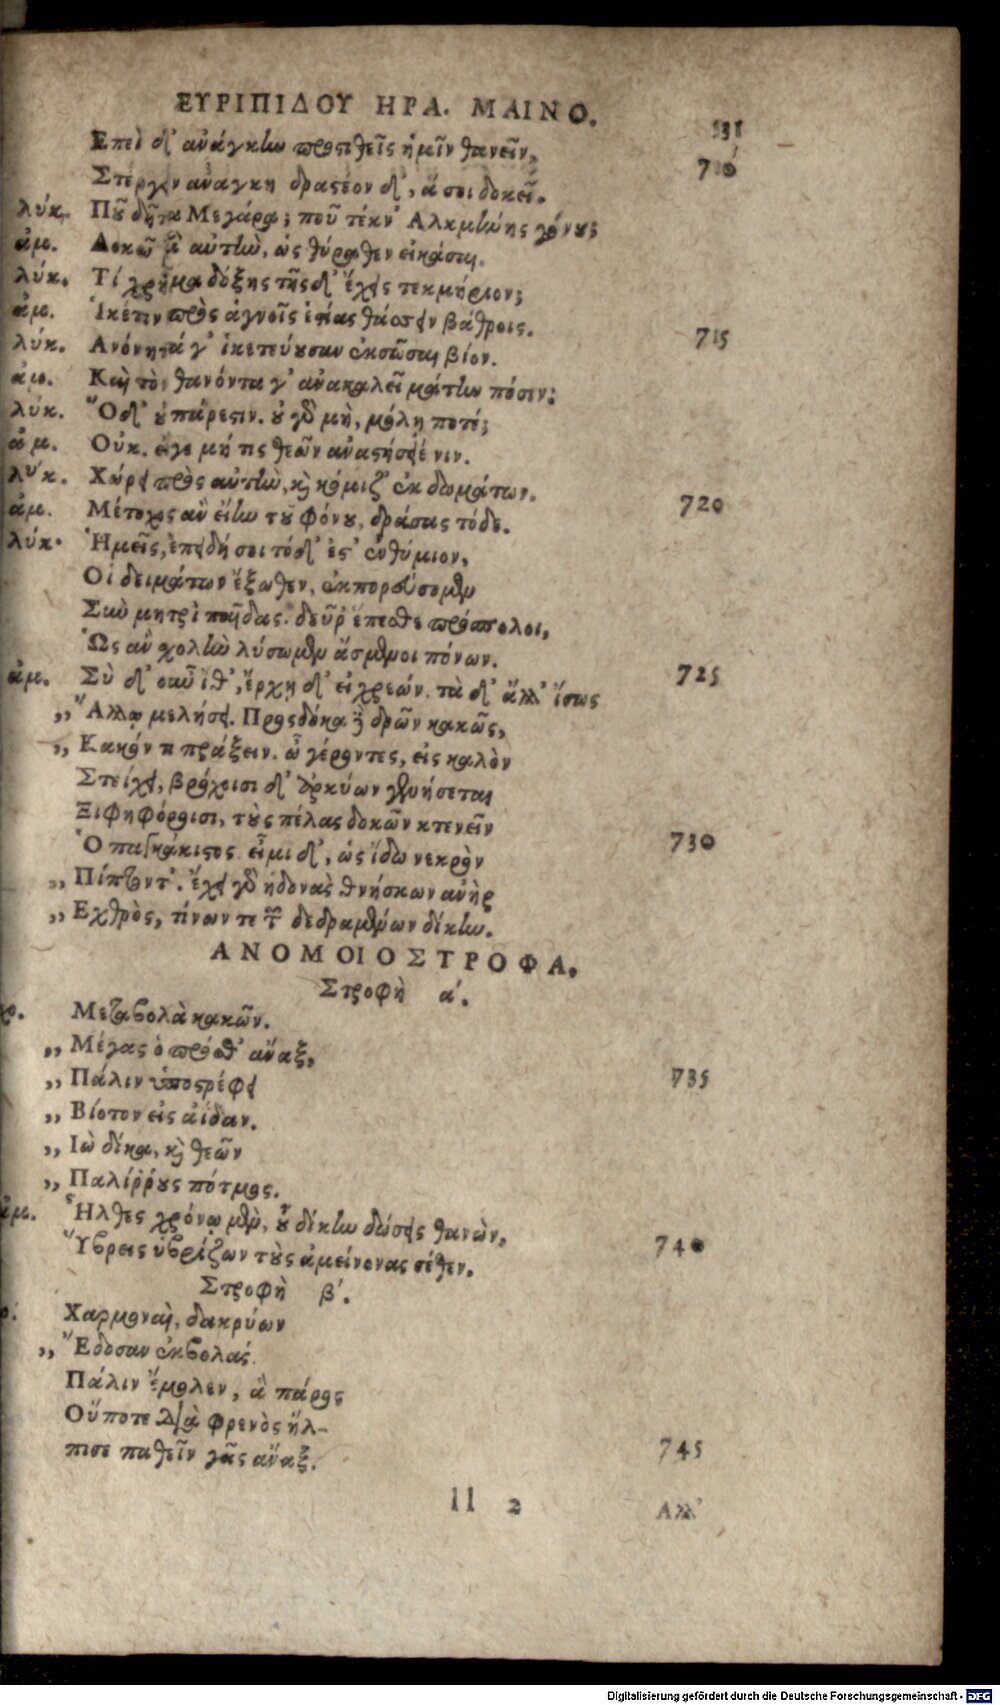 ΕΥΡΙΠΙΔΟΥ ΗΡΑ. ΜΑΙΝΟ. 531
Ἐπεὶ δ' ἀνάγκην προςτιθεῖς ἡμῖν θανεῖν,
Στέργειν ἀνάγκη δραστέον δ', ἅ σοι δοκεῖ. 710
λύκ. Ποῦ δῆτα Μεγάρα; ποῦ τέκν' Ἀλκμήνης γόνου;
ἀμ. Δοκῶ μὲν αὐτὴν, ὡς θύραθεν εἰκάσαι.
λύκ. Τί χρῆμα δόξης τῆςδ' ἔχεις τεκμήριον;
ἀμ. Ἱκέτιν πρὸς ἁγνοῖς ἑστίας θάσσειν βάθροις.
λύκ. Ἀνόνητά γ' ἱκετεύουσαν ἐκσῶσαι βίον. 715
ἀμ. Καὶ τὸν θανόντα γ' ἀνακαλεῖ μάτην πόσιν;
λύκ. Ὅδ' οὐ πάρεστιν. οὐ γὰρ μὴ, μόλῃ ποτέ;
ἀμ. Οὐκ. εἴγε μή τις θεῶν ἀναστήσειέ νιν.
λύκ. Χώρει πρὸς αὐτὴν, καὶ κόμιζ' ἐκ δωμάτων.
ἀμ. Μέτοχος ἂν εἴην τοῦ φόνου, δράσας τόδε. 720
λύκ. Ἡμεῖς, ἐπειδή σοι τόδ' ἔστ' ἐνθύμιον,
Οἱ δειμάτων ἔξωθεν, ἐκπορεύσομεν
Σὺν μητρὶ παῖδας. δεῦρ' ἕπεσθε πρόσπολοι,
Ὡς ἂν χολὴν λύσωμεν ἄσμενοι πόνων.
ἀμ. Σὺ δ' οὖν ἴθ', ἔρχῃ δ' εἰ χρεών. τὰ δ' ἄλλ' ἴσως 725
,, Ἄλλῳ μελήσει. Προςδόκα δὲ δρῶν κακῶς,
,, Κακόν τι πράξειν. ὦ γέροντες, εἰς καλὸν
Στείχει, βρόχοισι δ' ἀρκύων γενήσεται
Ξιφηφόροισι, τοὺς πέλας δοκῶν κτενεῖν
Ὁ παγκάκιστος. εἶμι δ', ὡς ἴδω νεκρὸν 730
,, Πίπτοντ'. ἔχει γὰρ ἡδονὰς θνήσκων ἀνὴρ
,, Ἐχθρὸς, τίνων τε τῶν δεδραμένων δίκην.
ΑΝΟΜΟΙΟΣΤΡΟΦΑ.
Στροφὴ α'.
χο. Μεταβολὰ κακῶν.
,, Μέγας ὁ πρόσθ' ἄναξ,
,, Πάλιν ὑποστρέφει 735
,, Βίοτον εἰς ἀΐδαν.
,, Ἰὼ δίκα, καὶ θεῶν
,, Παλίῤῥους πότμος.
ἀμ. Ἦλθες χρόνῳ μὲν, οὗ δίκην δώσεις θανὼν,
Ὕβρεις ὑβρίζων τοὺς ἀμείνονας σέθεν. 740
Στροφὴ β'.
ο. Χαρμοναὶ, δακρύων
,, Ἔδοσαν ἐκβολάς.
Πάλιν ἔμολεν, ἃ πάρος
Οὔποτε διὰ φρενὸς ἤλ-
πισε παθεῖν γᾶς ἄναξ. 745
ll 2 Ἀλλ'
Digitalisierung gefördert durch die Deutsche Forschungsgemeinschaft - DFG